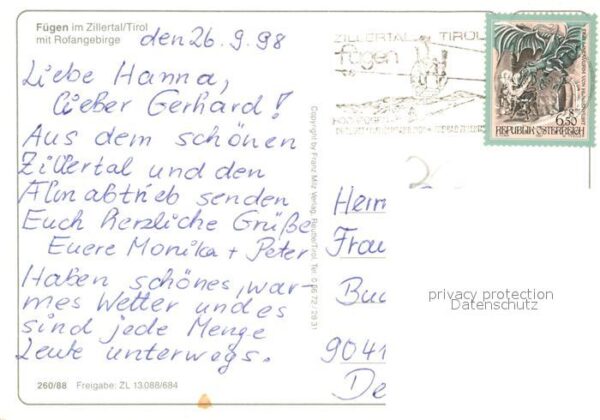 Fügen im Zillertal/Tirol
mit Rofangebirge
den 26.9.98
Liebe Hanna,
lieber Gerhard!
Aus dem schönen
Zillertal und den
Almabtrieb senden
Euch herzliche Grüße
Euere Monika + Peter
Haben schönes, war-
mes Wetter und es
sind jede Menge
Leute unterwegs.
260/88 Freigabe: ZL 13.088/684
Copyright by Franz Milz Verlag, Reutte/Tirol, Tel. 0 56 72 / 28 31
ZILLERTAL TIROL
fügen
6.50
REPUBLIK ÖSTERREICH
Herrn
Frau
Buc
9041
De
privacy protection
Datenschutz